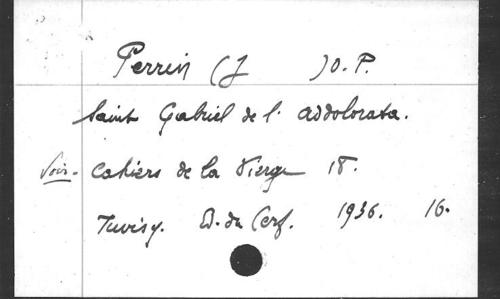 Perrin (J ) O.P.
Saint Gabriel de l'addolorata.
Voir - Cahiers de la Vierge 18.
Juvisy. Ed. du Cerf. 1936. 16.